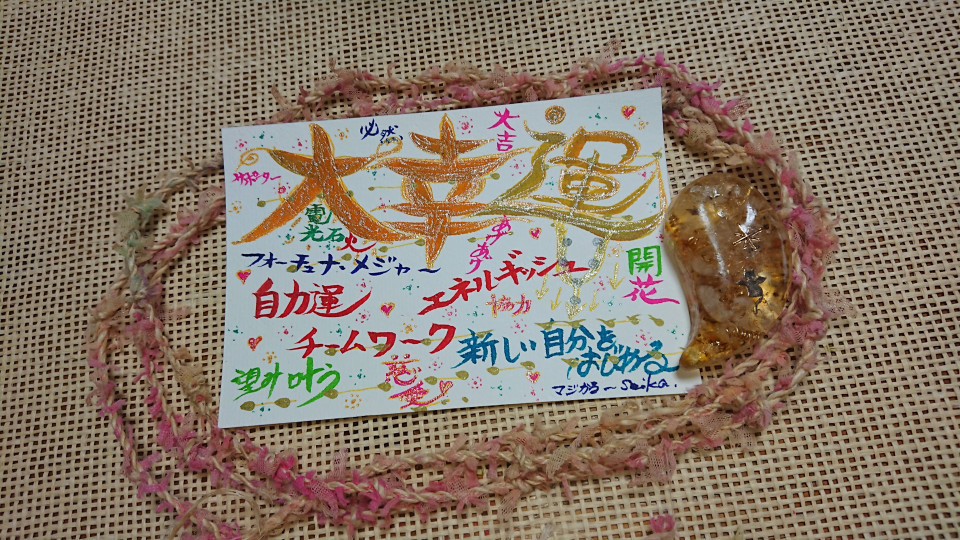 大幸運
必然
大吉
サポーター
電光石火
あげあげ
フォーチュナ・メジャー
エネルギッシュ
開花
自力運
協力
チームワーク
新しい自分を
はじめる
望み叶う
マジかる〜Seika.